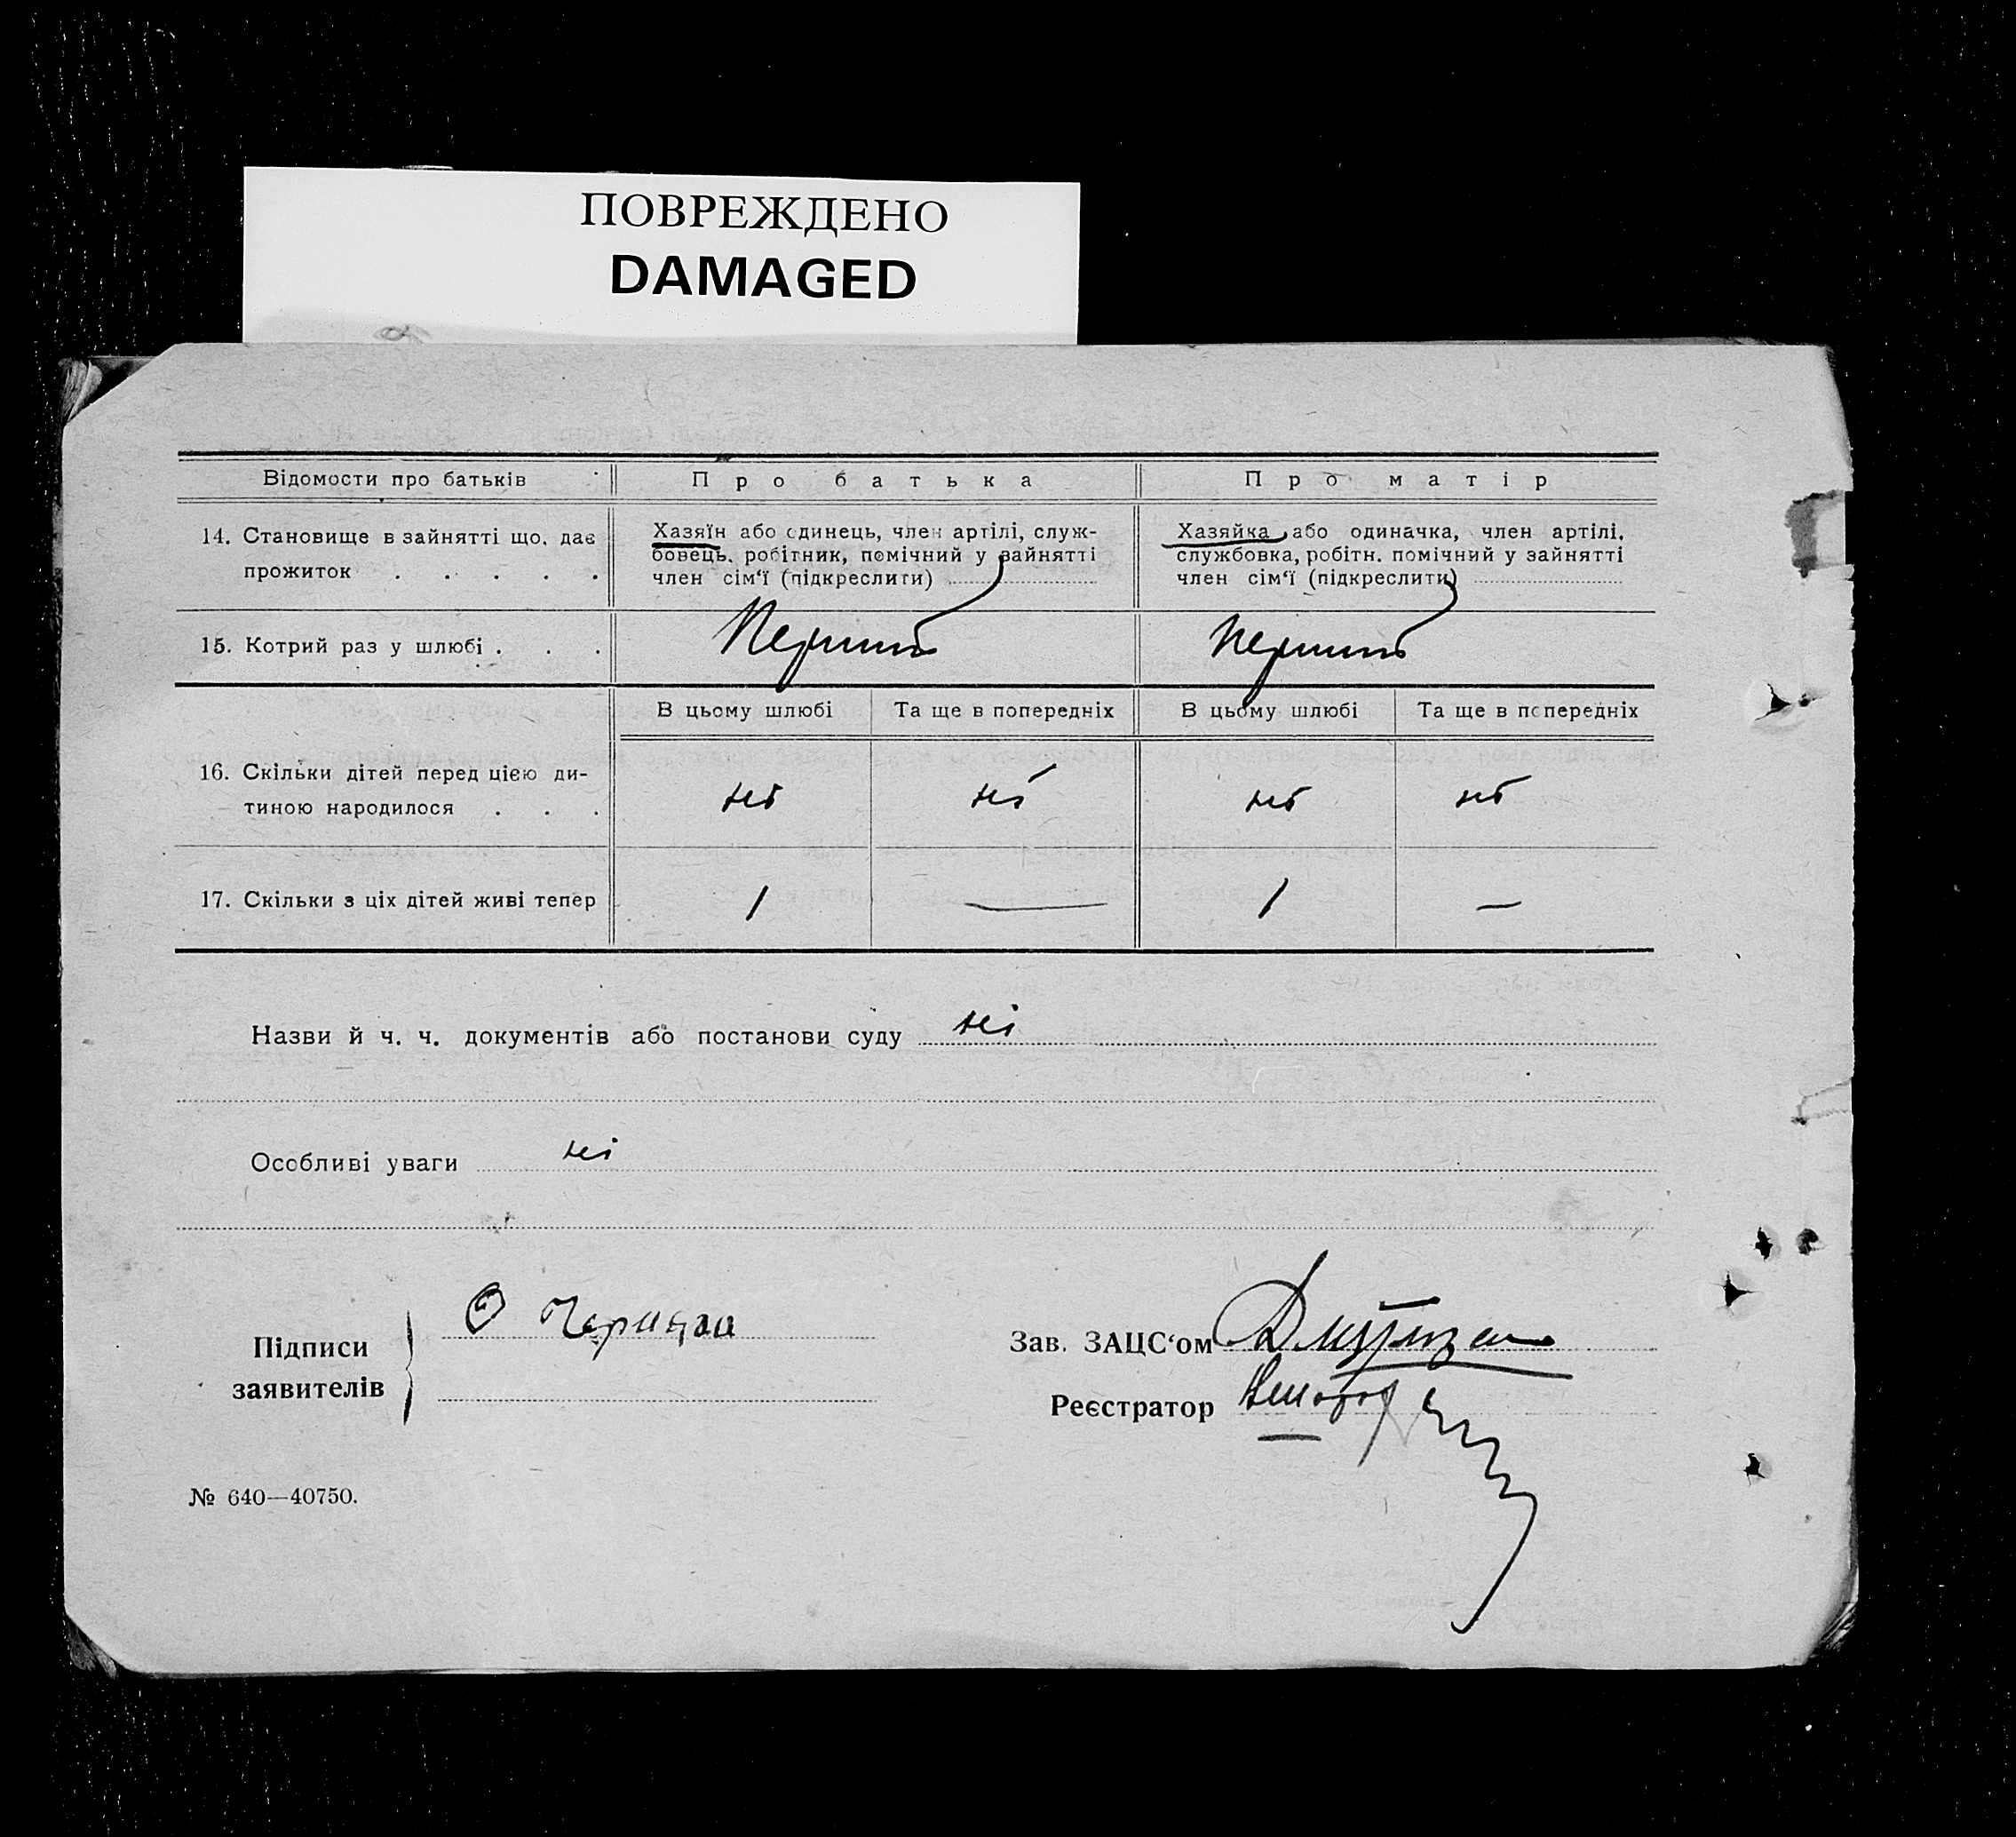 ПОВРЕЖДЕНО
DAMAGED
Відомости про батьків Про батька Про матір
14. Становище в зайнятті що, дає
прожиток . . . . .
Хазяїн або одинець, член артілі, служ-
бовець, робітник, помічний у зайнятті
член сім‘ї (підкреслити)
Хазяйка, або одиначка, член артілі,
службовка, робітн. помічний у зайнятті
член сім‘ї (підкреслити)
15. Котрий раз у шлюбі . . . Перший перший
В цьому шлюбі Та ще в попередніх В цьому шлюбі Та ще в попередніх
16. Скільки дітей перед цією ди-
тиною народилося . . . ні ні ні ні
17. Скільки з ціх дітей живі тепер 1 — 1 —
Назви й ч. ч. документів або постанови суду ні
Особливі уваги ні
Підписи
заявителів
Зав. ЗАЦС‘ом
Реєстратор
№ 640—40750.